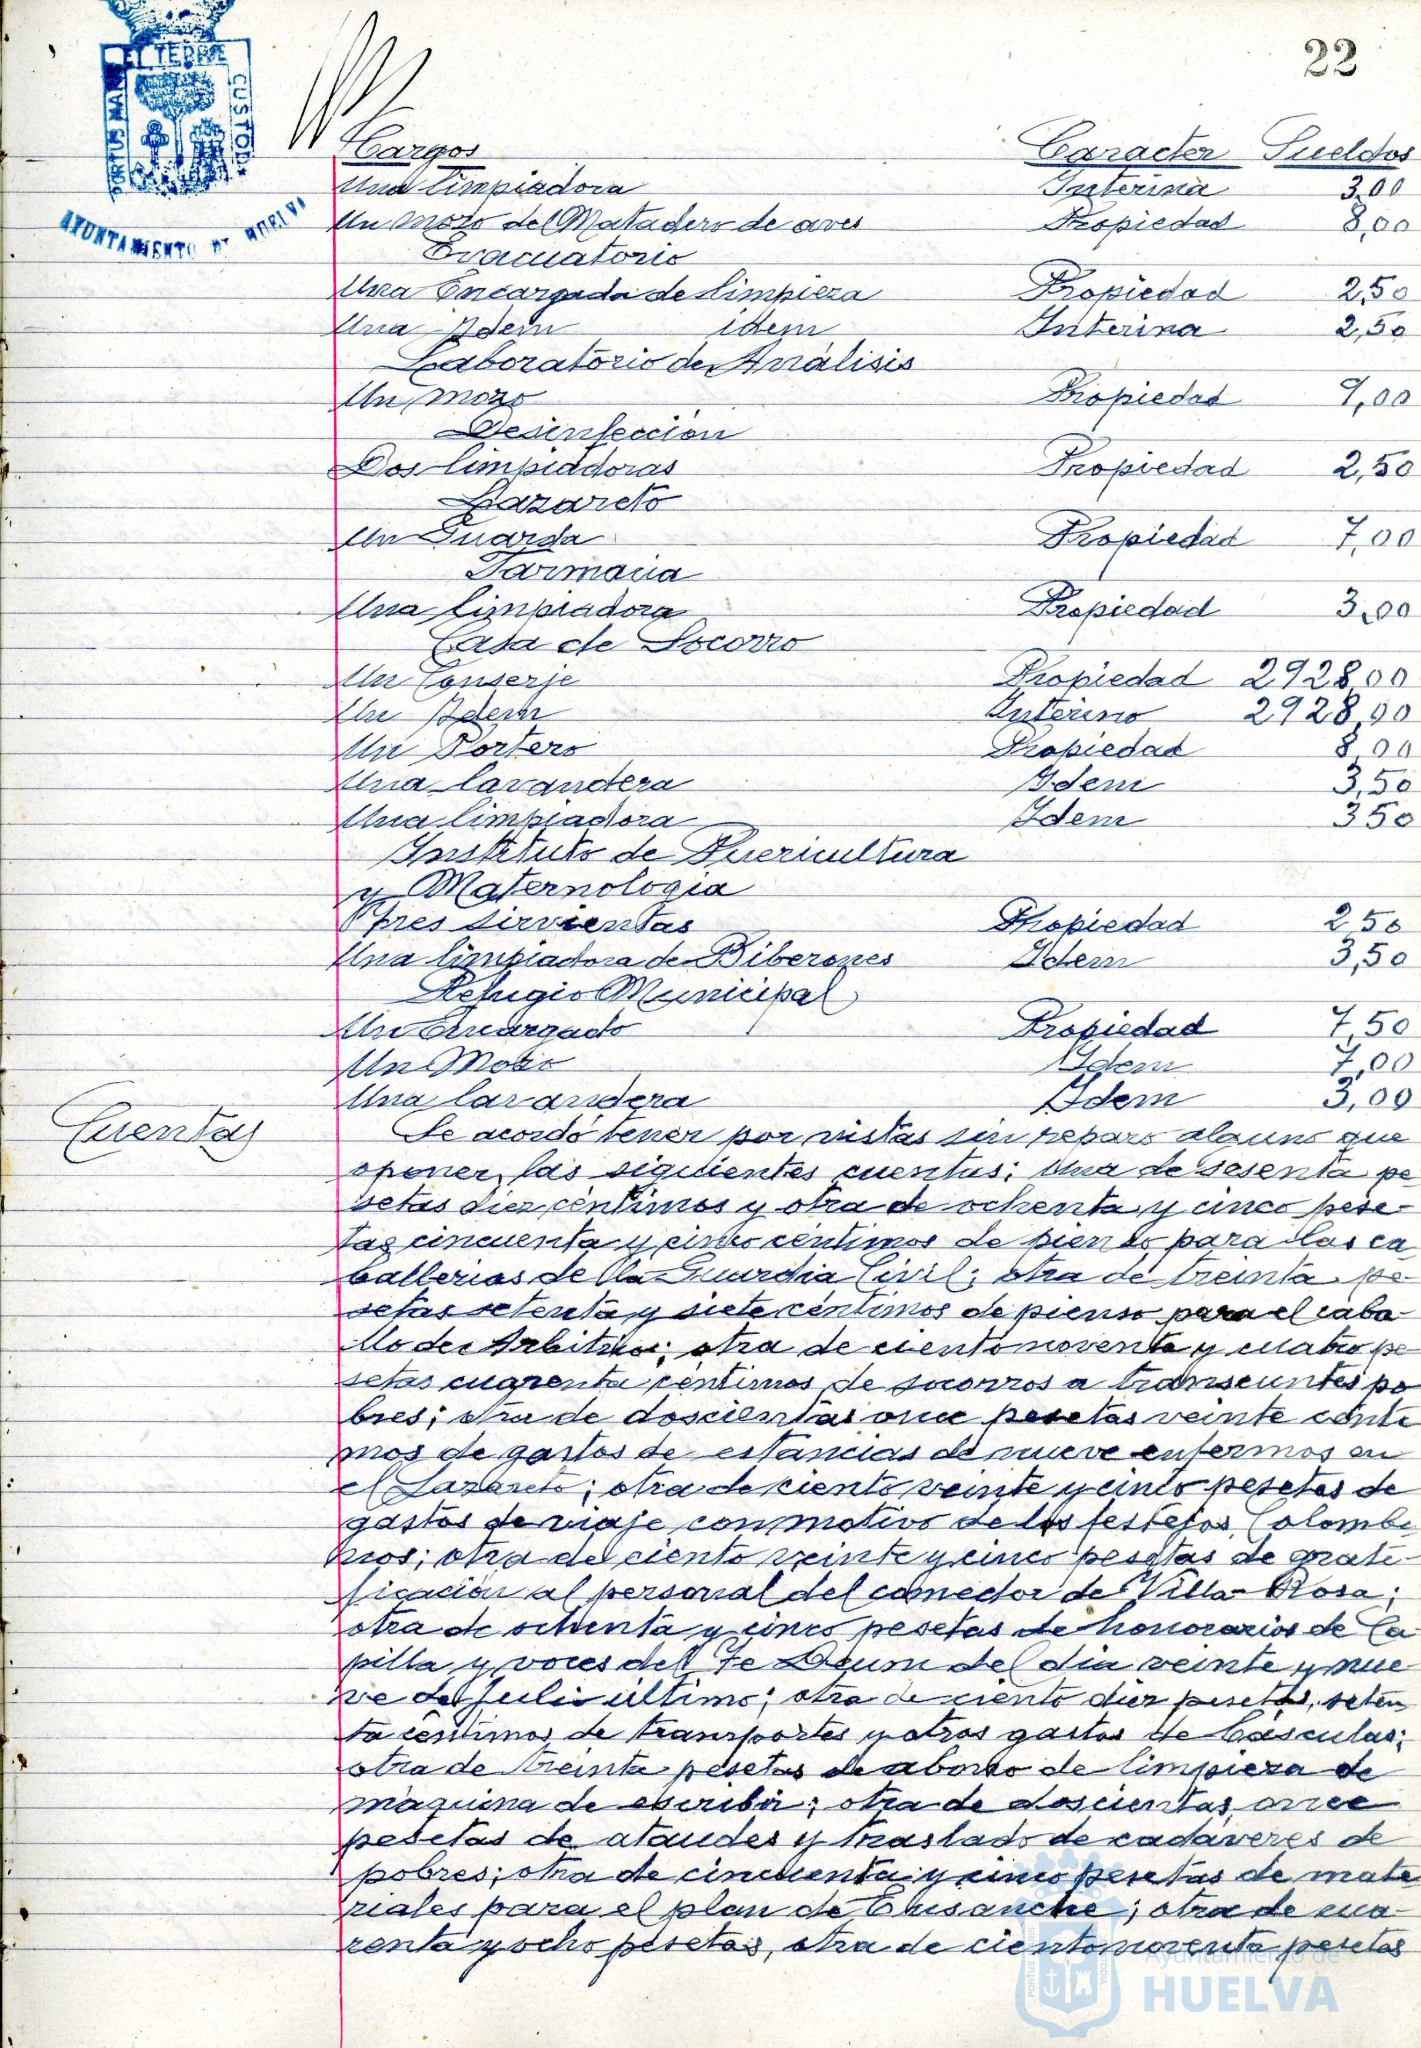 22
PORTUS MARIS ET TERRE CUSTODIA
AYUNTAMIENTO DE HUELVA
Cargos Caracter Sueldos
Una limpiadora Interina 3,00
Un mozo del Matadero de aves Propiedad 8,00
Evacuatorio
Una Encargada de limpieza Propiedad 2,50
Una Idem idem Interina 2,50
Laboratorio de Análisis
Un mozo Propiedad 9,00
Desinfección
Dos limpiadoras Propiedad 2,50
Lazareto
Un Guarda Propiedad 7,00
Farmacia
Una limpiadora Propiedad 3,00
Casa de Socorro
Un Conserje Propiedad 2928,00
Un Idem Interino 2928,00
Un Portero Propiedad 8,00
Una lavandera Idem 3,50
Una limpiadora Idem 3 50
Instituto de Puericultura
y Maternologia
Tres sirvientas Propiedad 2,50
Una limpiadora de Biberones Idem 3,50
Refugio Municipal
Un Encargado Propiedad 7,50
Un Mozo Idem 7,00
Una lavandera Idem 3,00
Cuentas
Se acordó tener por vistas sin reparo alguno que
oponer, las siguientes cuentas: Una de sesenta pe-
setas diez céntimos y otra de ochenta y cinco pese-
tas cincuenta y cinco céntimos de pienso para las ca
ballerias de la Guardia Civil; otra de treinta pe-
setas setenta y siete céntimos de pienso para el caba-
llo de Arbitrios; otra de ciento noventa y cuatro pe-
setas cuarenta céntimos de socorros a transeuntes po
bres; otra de doscientas once pesetas veinte cénti
mos de gastos de estancias de nueve enfermos en
el Lazareto; otra de ciento veinte y cinco pesetas de
gastos de viaje con motivo de los festejos Colombi
nos; otra de ciento veinte y cinco pesetas de grati-
ficación al personal del comedor de Villa Rosa;
otra de ochenta y cinco pesetas de honorarios de Ca-
pilla y voces del Te Deum del dia veinte y nue-
ve de Julio último; otra de ciento diez pesetas, seten
ta céntimos de transportes y otros gastos de básculas;
otra de treinta pesetas de abono de limpieza de
máquina de escribir; otra de doscientas once
pesetas de ataudes y traslado de cadáveres de
pobres; otra de cincuenta y cinco pesetas de mate
riales para el plan de Ensanche; otra de cua-
renta y ocho pesetas, otra de ciento noventa pesetas
Ayuntamiento de
HUELVA